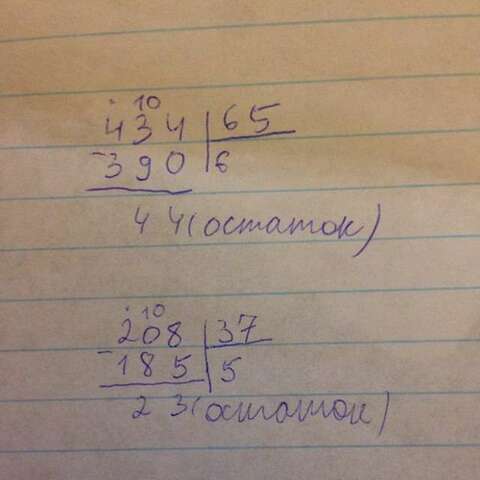 · 10
434 | 65
- 390 | 6
44 (остаток)
· 10
208 | 37
- 185 | 5
23 (остаток)